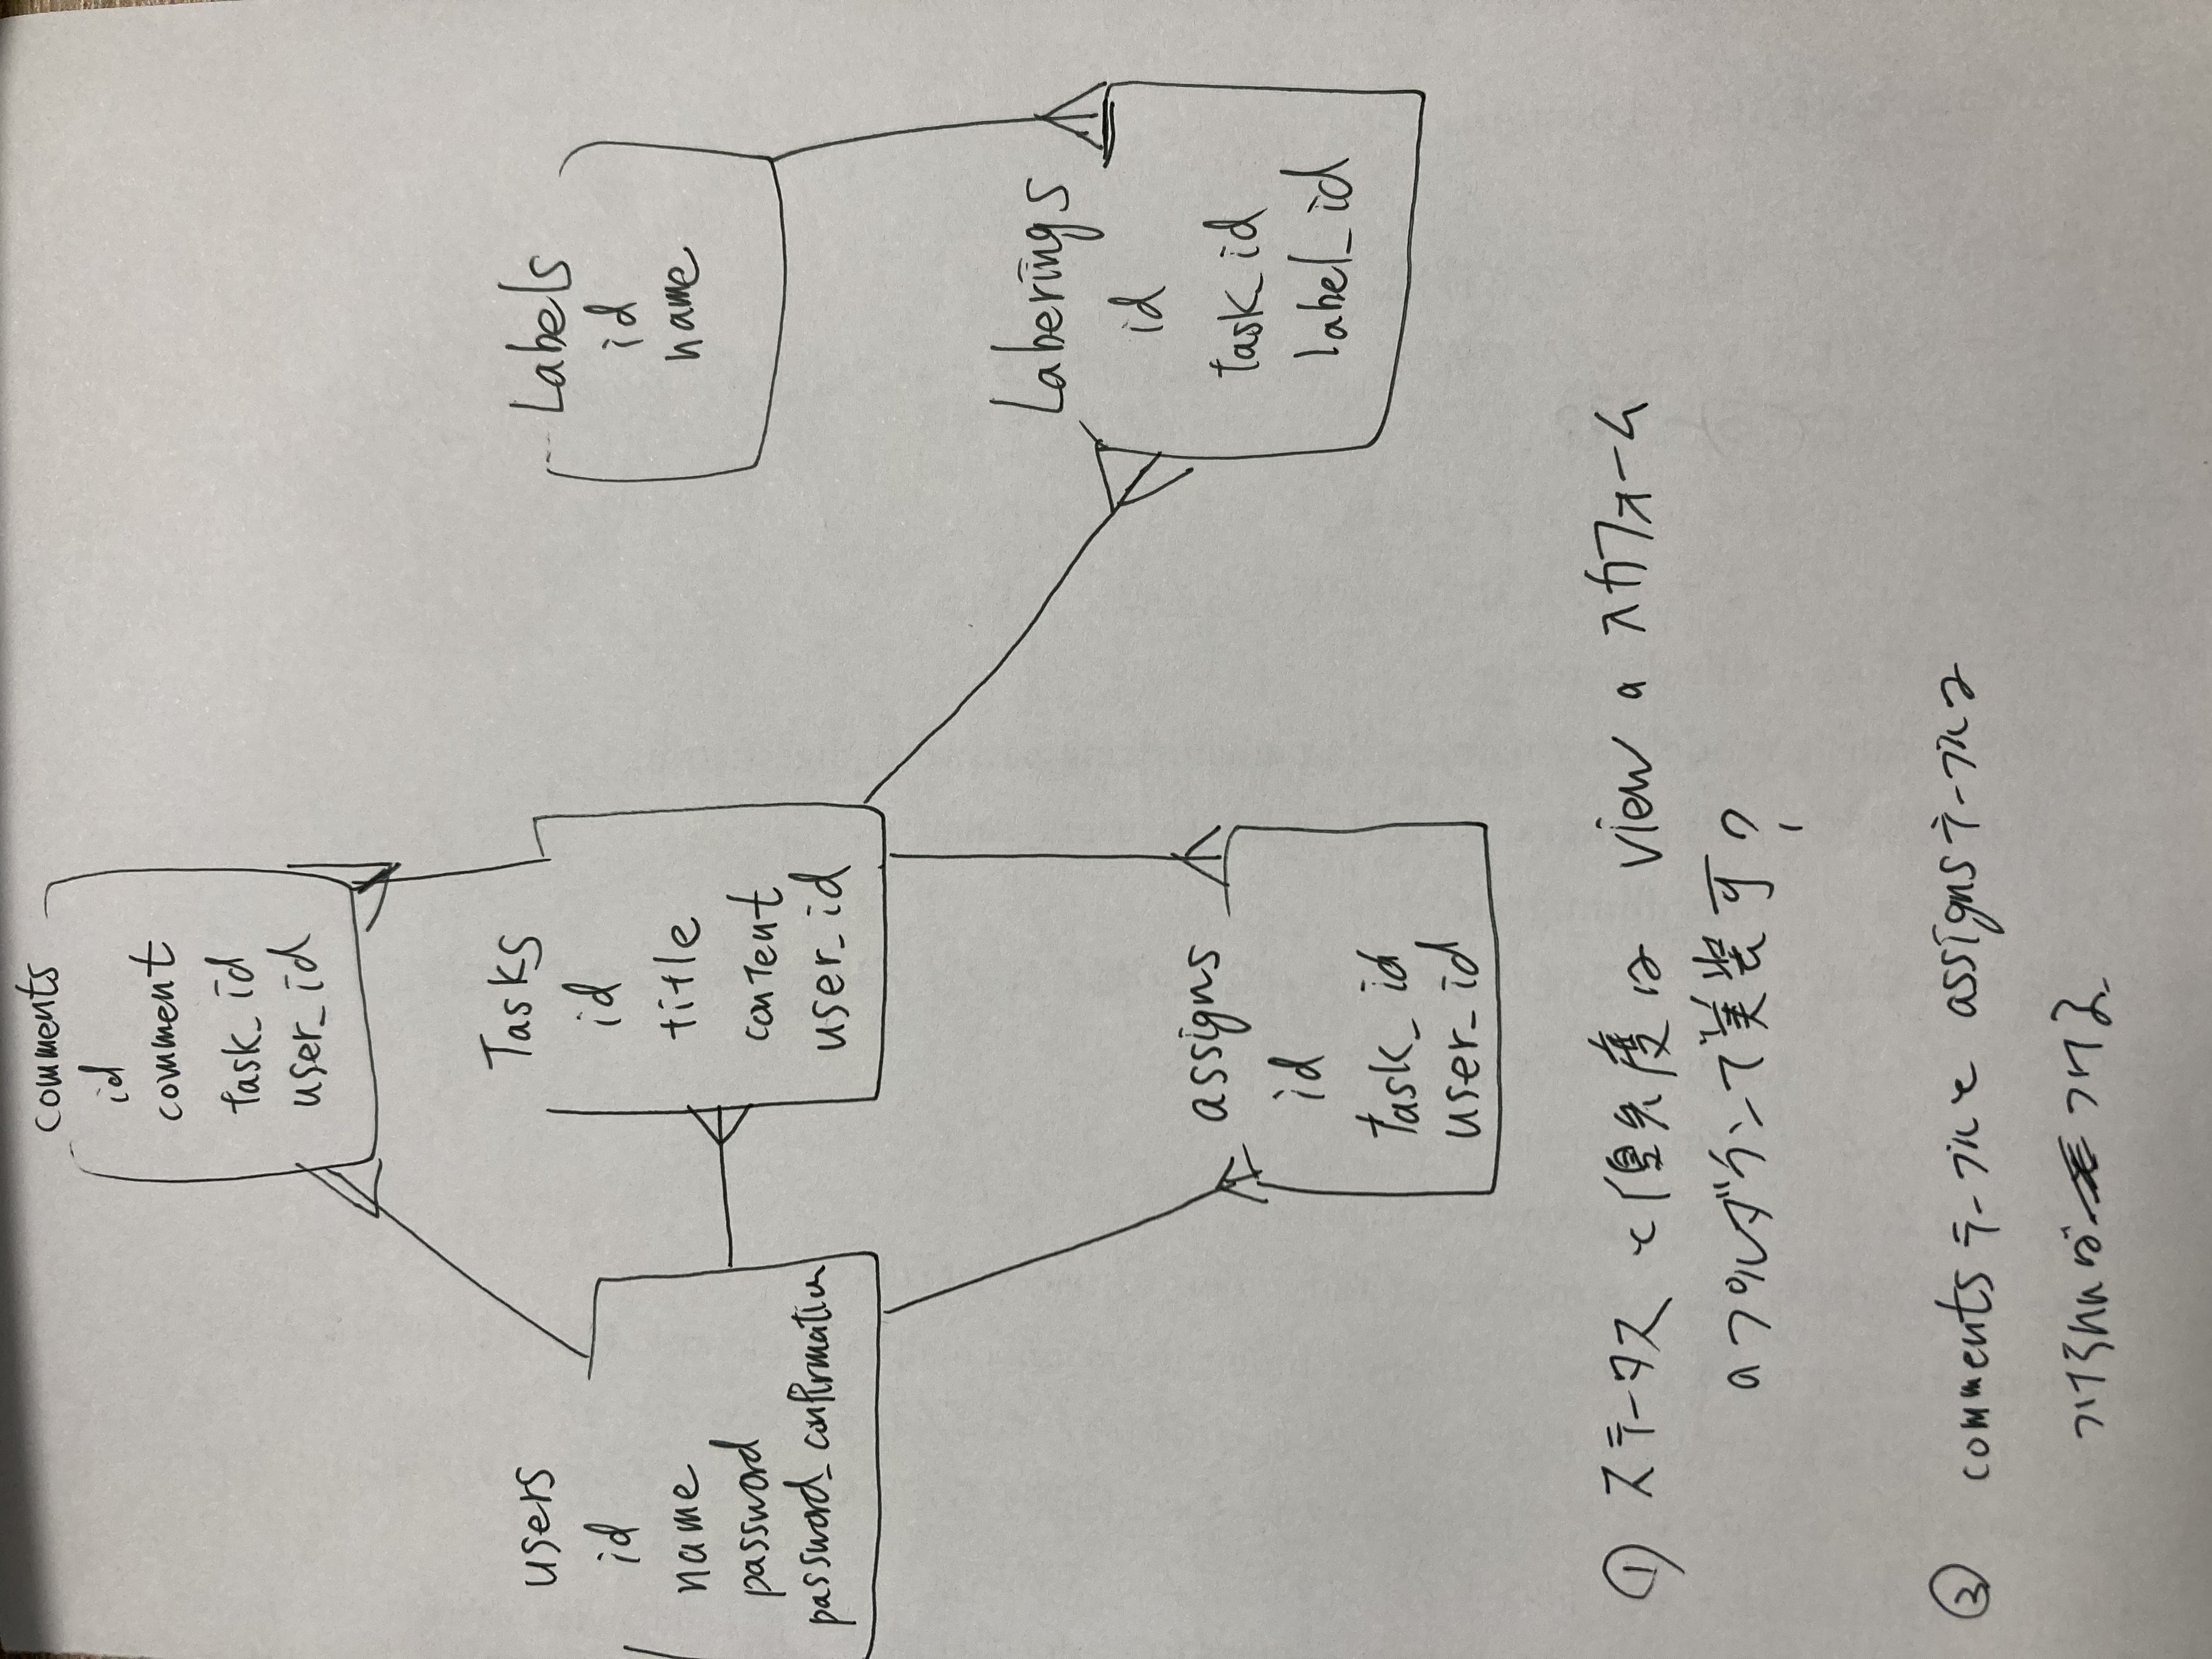 comments
id
comment
task_id
user_id
users
id
name
password
password_confirmation
Tasks
id
title
content
user_id
Labels
id
name
Laberings
id
task_id
label_id
assigns
id
task_id
user_id
① ステータスと優先度は viewの入力フォーム
のプルダウンで実装可?
② commentsテーブルと assignsテーブルは
つけられれば つける